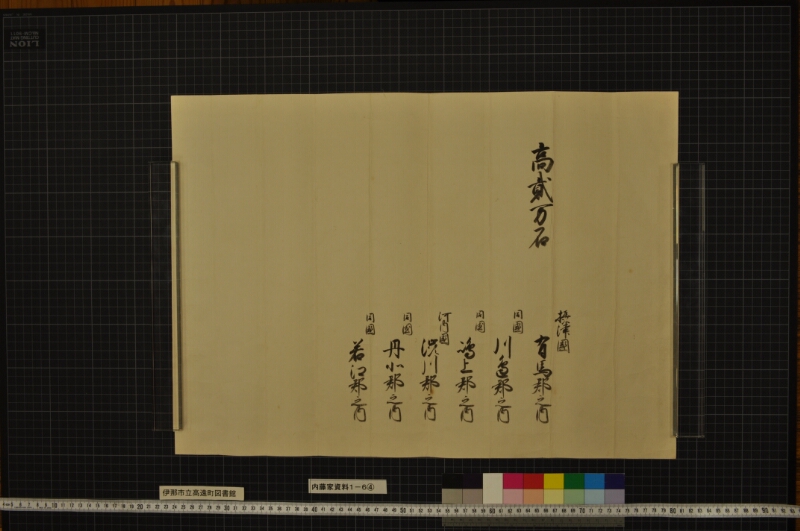 高貳万石
摂津國
有馬郡之内
同國
川邉郡之内
同國
嶋上郡之内
河内國
渋川郡之内
同國
丹北郡之内
同國
若江郡之内
伊那市立高遠町図書館
内藤家資料1-6④
LION